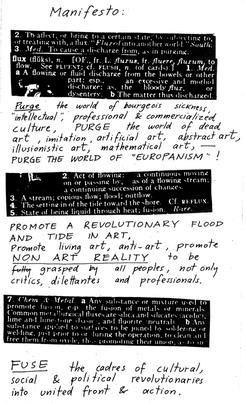 Manifesto:
2. To affect, or bring to a certain state, by subjecting to,
or treating with, a flux. "Fluxed into another world." South.
3. Med. To cause a discharge from, as in purging.
flux (flŭks), n. [OF., fr. L. fluxus, fr. fluere, fluxum, to
flow. See FLUENT; cf. FLUSH, n. (of cards).] 1. Med.
a A flowing or fluid discharge from the bowels or other
part; esp., an excessive and morbid
discharge; as, the bloody flux, or
dysentery. b The matter thus discharged.
Purge the world of bourgeois sickness,
"intellectual", professional & commercialized
culture, PURGE the world of dead
art, imitation, artificial art, abstract art,
illusionistic art, mathematical art, —
PURGE THE WORLD OF "EUROPANISM"!
2. Act of flowing: a continuous moving
on or passing by, as of a flowing stream;
a continuing succession of changes.
3. A stream; copious flow; flood; outflow.
4. The setting in of the tide toward the shore. Cf. REFLUX.
5. State of being liquid through heat; fusion. Rare.
PROMOTE A REVOLUTIONARY FLOOD
AND TIDE IN ART,
Promote living art, anti-art, promote
NON ART REALITY to be
fully grasped by all peoples, not only
critics, dilettantes and professionals.
7. Chem. & Metal. a Any substance or mixture used to
promote fusion, esp. the fusion of metals or minerals.
Common metallurgical fluxes are silica and silicates (acidic),
lime and limestone (basic), and fluorite (neutral). b Any
substance applied to surfaces to be joined by soldering or
welding, just prior to or during the operation, to clean and
free them from oxide, thus promoting their union, as
FUSE the cadres of cultural,
social & political revolutionaries
into united front & action.